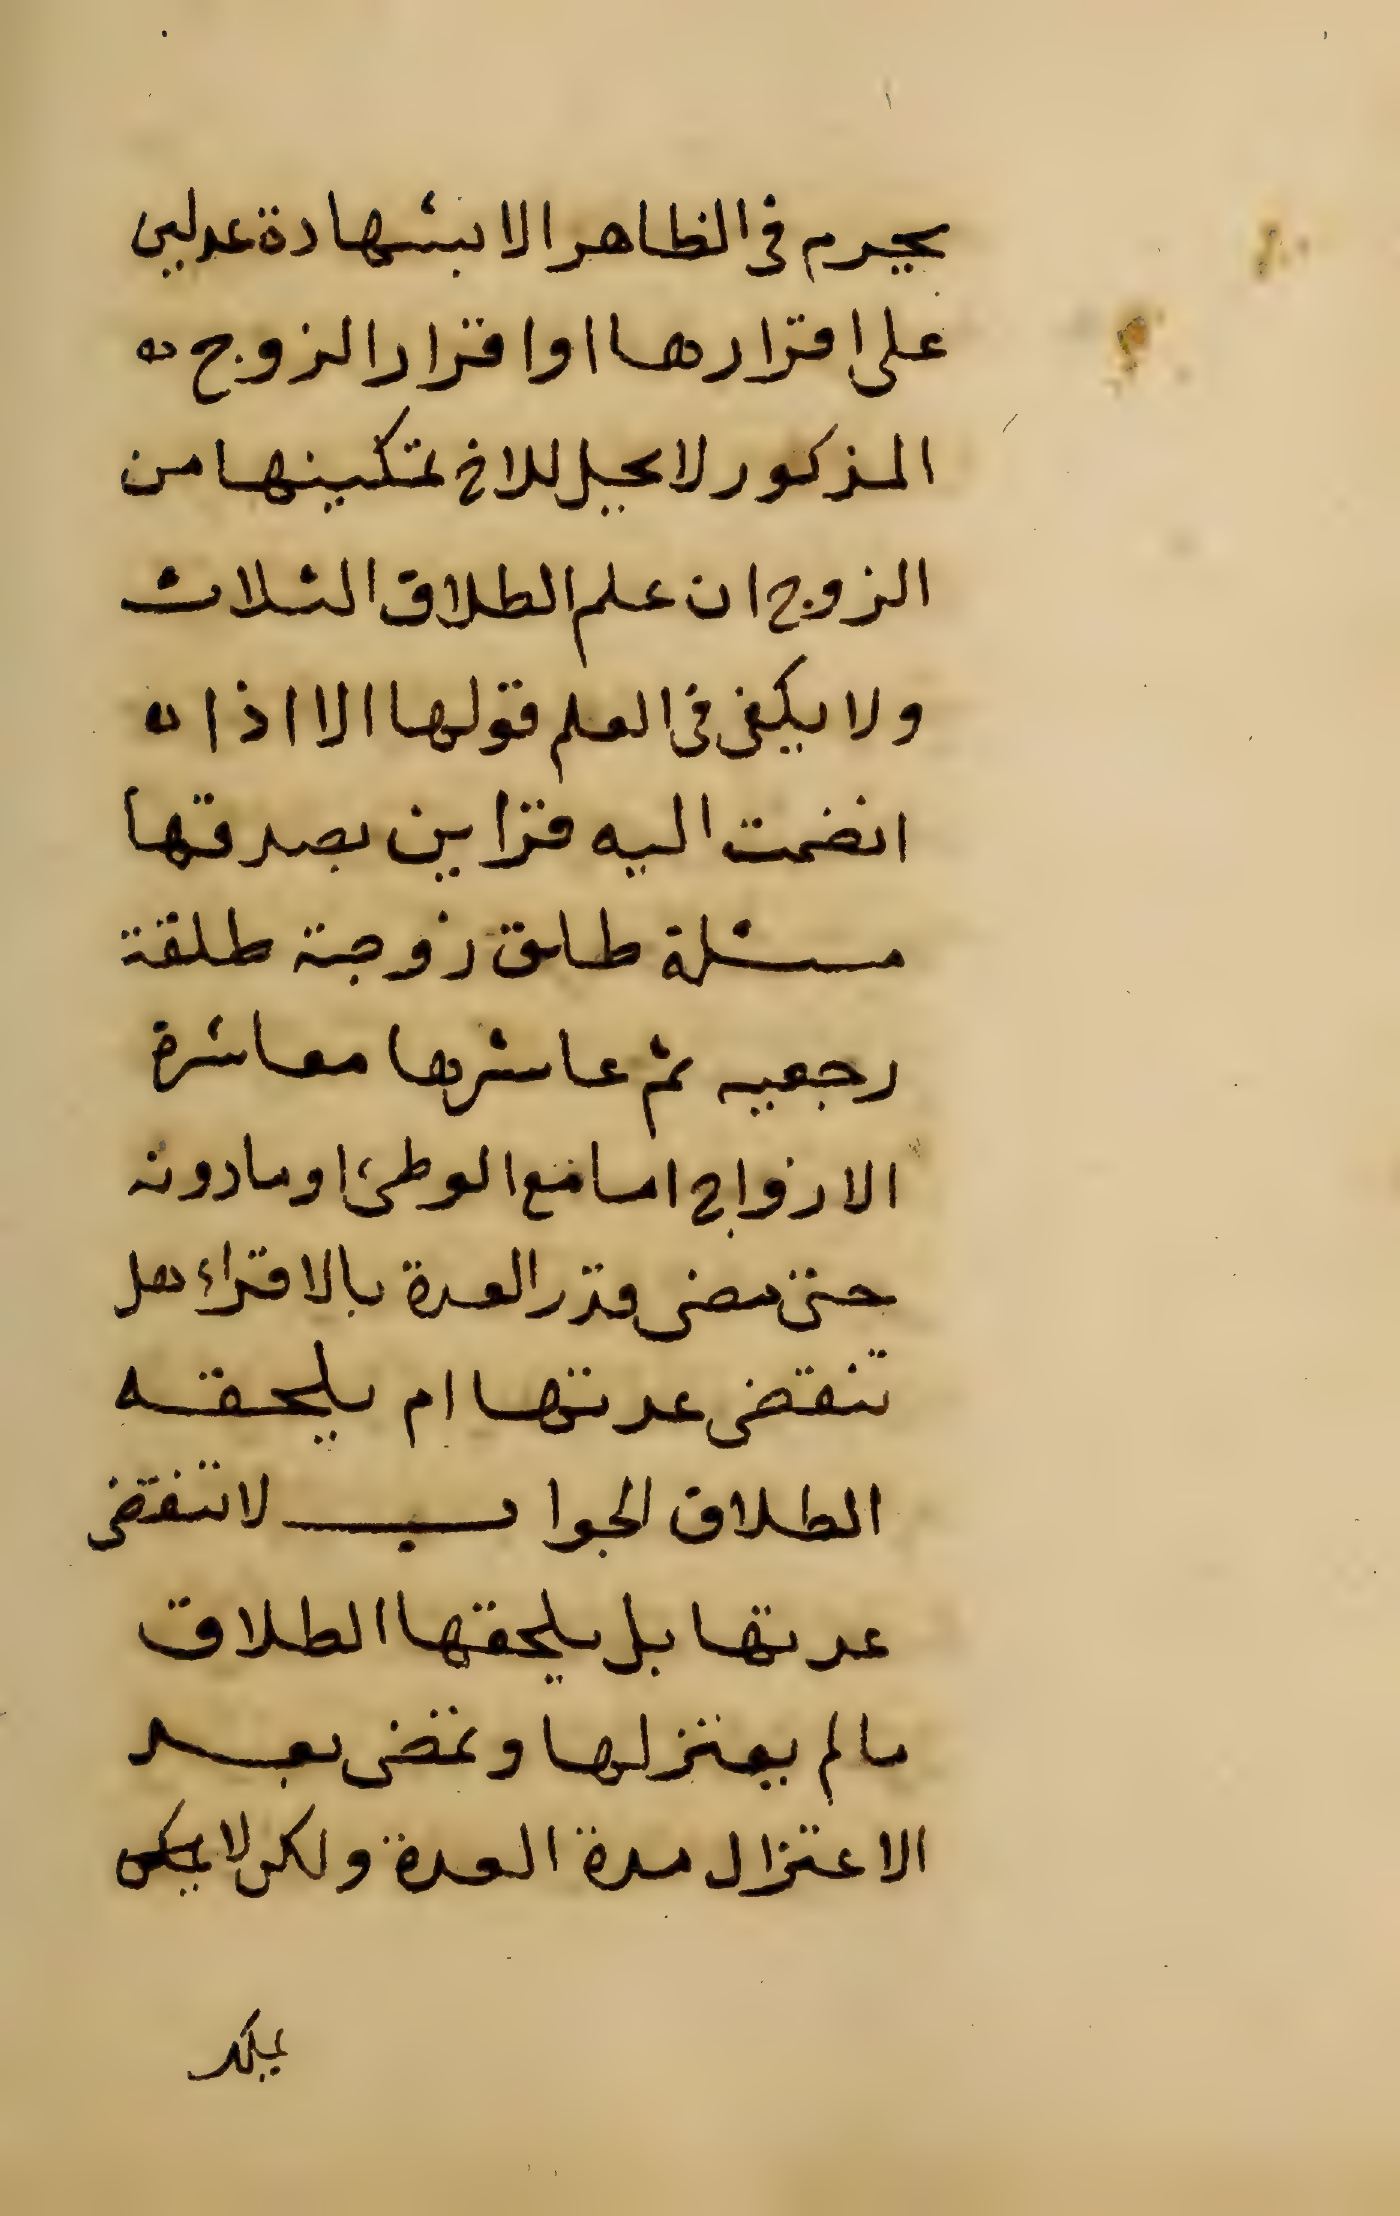 يحرم في الظاهر الا بشهادة عدلين
على اقرارها او اقرار الزوج ه
المذكور لا يحل للاخ تمكينها من
الزوج ان علم الطلاق الثلاث
ولا يكفي في العلم قولها الا اذا ه
انضمت اليه قراين بصدقها
مسئلة طلق زوجته طلقة
رجعيه ثم عاشرها معاشرة
الازواج اما مع الوطئ او مادونه
حتى مضى قدر العدة بالاقراء هل
تنقضى عدتها ام يلحقه
الطلاق الجواب لا تنقضى
عدتها بل يلحقها الطلاق
مالم يعتزلها وتمضى بعد
الاعتزال مدة العدة ولكن لا يمكن
يمكن